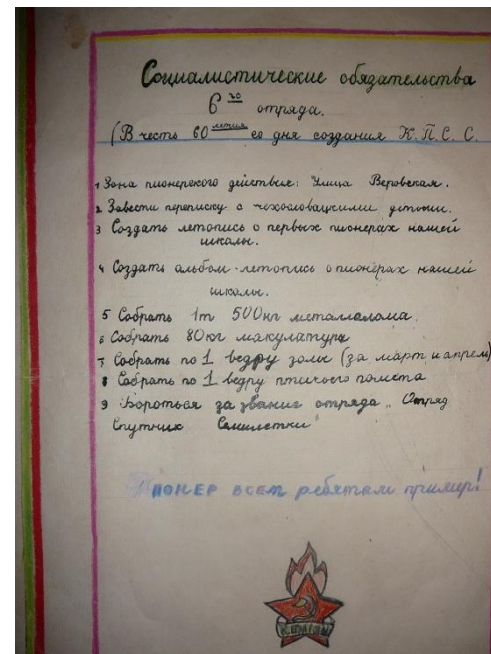 Социалистические обязательства
6го отряда.
(В честь 60летия со дня создания К.П.С.С.
1 Зона пионерского действия: Улица Веровская.
2 Завести переписку с чехословацкими детьми.
3 Создать летопись о первых пионерах нашей
школы.
4 Создать альбом-летопись о пионерах нашей
школы.
5 Собрать 1т 500кг металлалома.
6 Собрать 80кг макулатуры
7 Собрать по 1 ведру золы (за март и апрель)
8 Собрать по 1 ведру птичьего помёта
9 Бороться за звание отряда „Отряд
Спутник Семилетки"
Пионер всем ребятам пример!